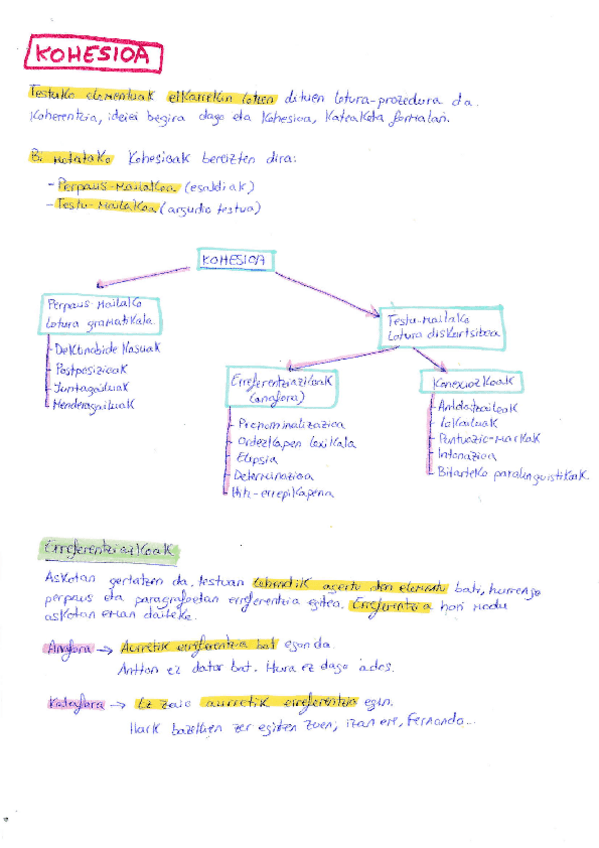 KOHESIOA
Testuko elementuak elkarrekin lotzen dituen lotura-prozedura da.
Koherentzia, ideiei begira dago eta Kohesioa, Kateaketa formalari.
Bi motatako Kohesioak bereizten dira:
- Perpaus-Mailakoa (esaldiak)
- Testu-Mailakoa (argudio testua)
KOHESIOA
Perpaus-Mailako
lotura gramatikala.
- Deklinabide Kasuak
- Postposizioak
- Juntagailuak
- Menderagailuak
Testu-Mailako
lotura diskurtsiboa
Erreferentziazkoak
(anafora)
- Pronominalizazioa
- Ordezkapen lexikala
- Elipsia
- Determinazioa
- Hitz-errepikapena
Konexiozkoak
- Antolatzaileak
- lokailuak
- Puntuazio-markak
- Intonazioa
- Bitarteko paralinguistikoak.
Erreferentziazkoak
Askotan gertatzen da, testuan lehendik agertu den elementu bati, hurrengo
perpaus eta paragrafoetan erreferentzia egitea. Erreferentzia hori modu
askotan eman daiteke.
Anafora → Aurretik erreferentzia bat egon da.
Antton ez dator bat. Hura ez dago ados.
Katafora → Ez zaio aurretik erreferentzia egin.
Hark bazekien zer egiten zuen, izan ere, Fernando...